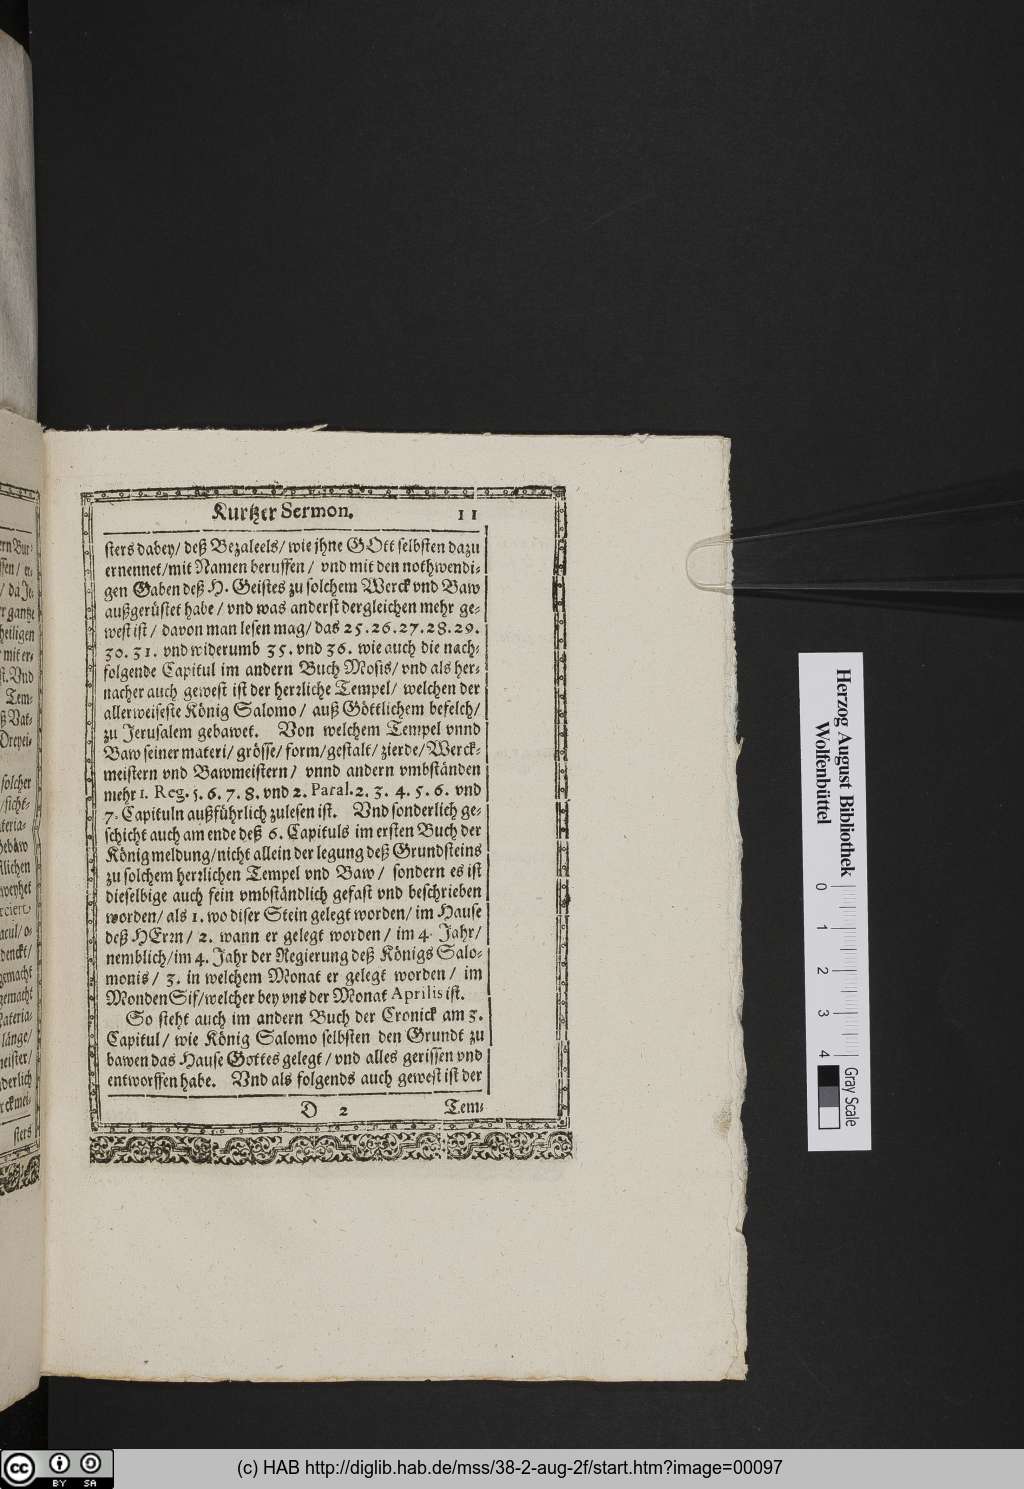 Kurtzer Sermon. 11
sters dabey/ deß Bezaleels/ wie jhne GOtt selbsten dazu
ernennet/mit Namen beruffen / vnd mit den nothwendi-
gen Gaben deß H. Geistes zu solchem Werck vnd Baw
außgerüstet habe / vnd was anderst dergleichen mehr ge-
west ist / davon man lesen mag/ das 25.26.27.28.29.
30. 31. vnd widerumb 35. vnd 36. wie auch die nach-
folgende Capitul im andern Buch Mosis/ vnd als her-
nacher auch gewest ist der herzliche Tempel/ welchen der
allerweiseste König Salomo / auß Göttlichem befelch/
zu Jerusalem gebawet. Von welchem Tempel vnnd
Baw seiner materi/ grösse/ form/ gestalt/ zierde/ Werck-
meistern vnd Bawmeistern / vnnd andern vmbständen
mehr 1. Reg. 5. 6. 7. 8. vnd 2. Paral. 2. 3. 4. 5. 6. vnd
7. Capituln außführlich zulesen ist. Vnd sonderlich ge-
schicht auch am ende deß 6. Capituls im ersten Buch der
König meldung/nicht allein der legung deß Grundsteins
zu solchem herzlichen Tempel vnd Baw / sondern es ist
dieselbige auch fein vmbständlich gefast vnd beschrieben
worden/ als 1. wo diser Stein gelegt worden/ im Hause
deß HErzn / 2. wann er gelegt worden / im 4. Jahr/
nemblich/im 4. Jahr der Regierung deß Königs Salo-
monis / 3. in welchem Monat er gelegt worden / im
Monden Sif/welcher bey vns der Monat Aprilis ist.
So steht auch im andern Buch der Cronick am 3.
Capitul / wie König Salomo selbsten den Grundt zu
bawen das Hause Gottes gelegt / vnd alles gerissen vnd
entworffen habe. Vnd als folgends auch gewest ist der
D 2 Tem-
Herzog August Bibliothek
Wolfenbüttel
0 1 2 3 4
Gray Scale
(c) HAB http://diglib.hab.de/mss/38-2-aug-2f/start.htm?image=00097
cc BY SA